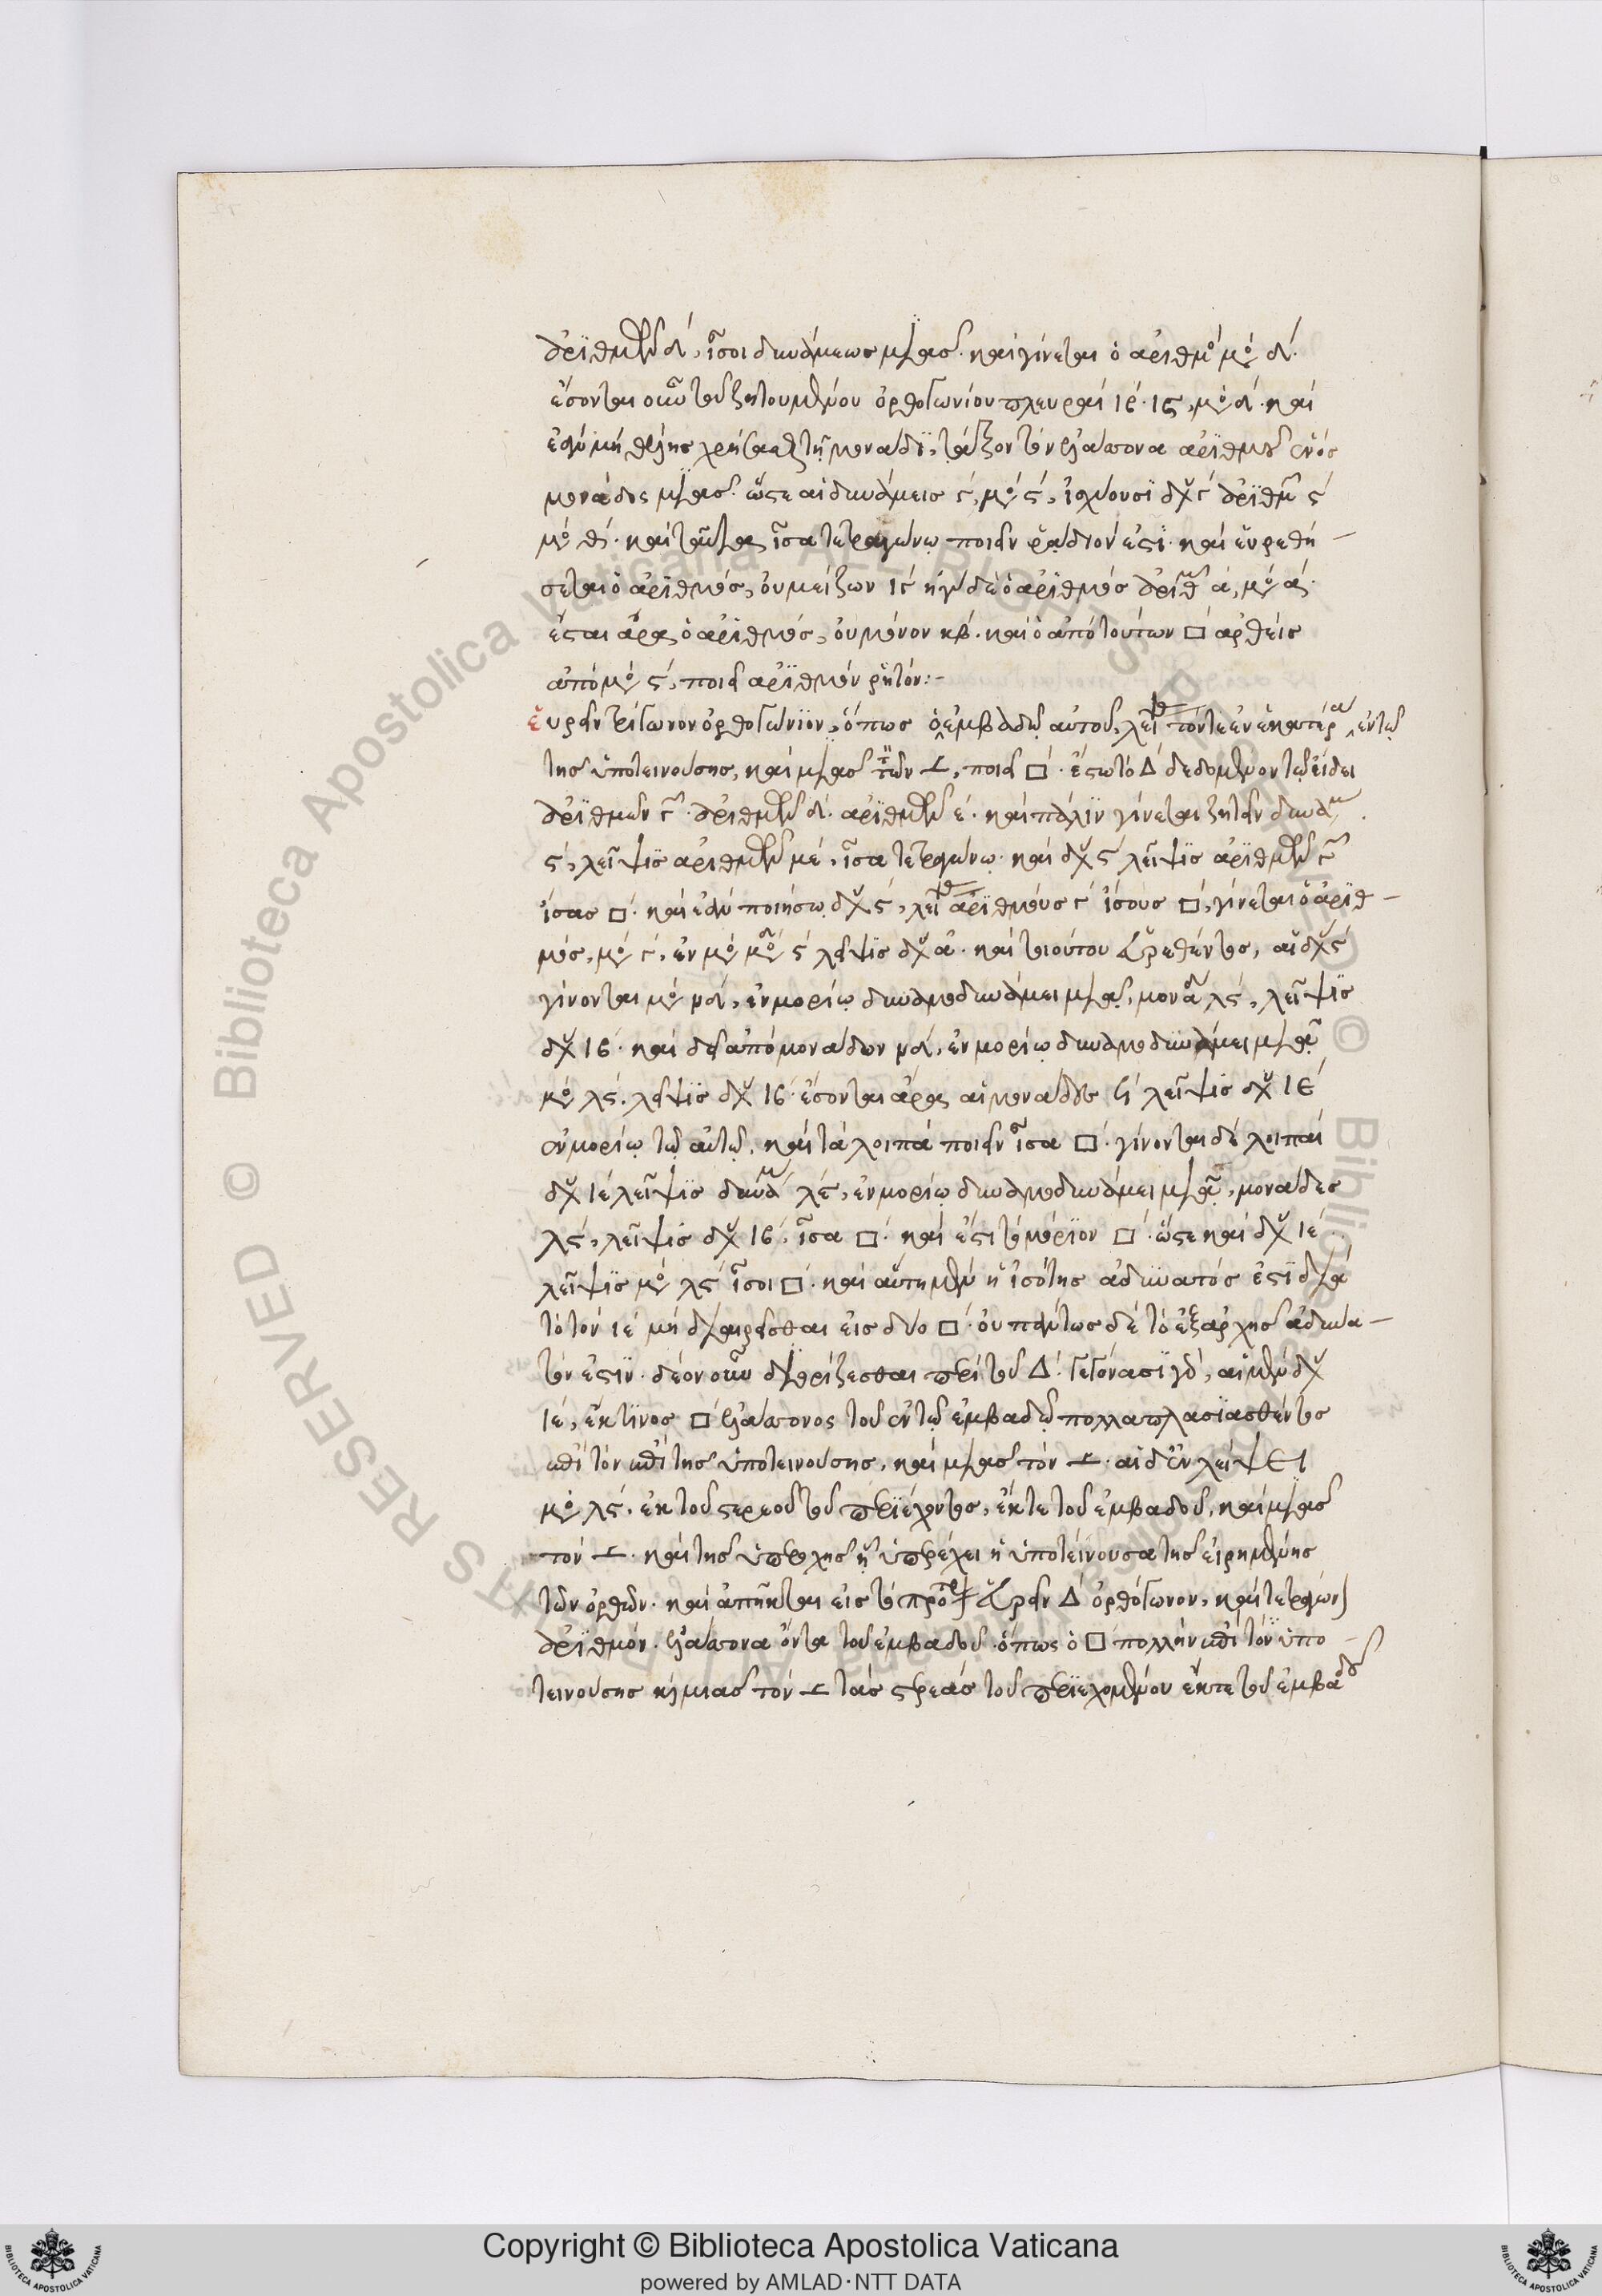 ἀριθμῶν δ, ἴσοι δυνάμεως μιᾶς. καὶ γίνεται ὁ ἀριθμὸ μ̊ δ.
ἔσονται οὖν τοῦ ζητουμένου ὀρθογωνίου πλευραὶ ιβ. ις, μ̊ δ. καὶ
ἐὰν μὴ θέλῃς χρήσασθαι τῇ μονάδι, τάξον τὸν ἐλάσσονα ἀριθμοῦ ἑνός
μονάδος μιᾶς. ὥστε αἱ δυνάμεις
μ̊ θ. καὶ ταῦτα ἴσα τετραγώνῳ ποιεῖν ῥᾴδιόν ἐστι. καὶ εὑρεθή-
σεται ὁ ἀριθμός, οὐ μείζων ιγ ἦν δὲ ὁ ἀριθμός ἀριθ α, μ̊ α.
ἔσται ἄρα ὁ ἀριθμός, οὐ μόνον κβ. καὶ ὁ ἀπὸ τούτων □ ἀρθεὶς
ἀπὸ μ̊ ϛ, ποιεῖ ἀριθμὸν ῥητόν:-
εὑρεῖν τρίγωνον ὀρθογώνιον, ὅπως ὁ ἐμβαδῷ αὐτοῦ, λεῖ τὸν τε ἐν ἑκατέρα, ἐν τῷ
τῆς ὑποτεινούσης, καὶ μιᾶς τῶν ⊥, ποιεῖ □. ἔστω τὸ Δ δεδομένον τῷ εἴδει
ἀριθμῶν γ. ἀριθμῶν δ. ἀριθμῶν ε. καὶ πάλιν γίνεται ζητεῖν δυνάμ
ϛ, λεῖψις ἀριθμῶν ιε, ἴσα τετραγώνῳ. καὶ δυ ϛ λεῖψις ἀριθμῶν γ
ἴσας □. καὶ ἐὰν ποιήσω δυ ϛ, λεῖ ἀριθμοὺς γ ἴσους □, γίνεται ὁ ἀριθ-
μός, μ̊ γ, ἐν μ̊ μο ϛ λείψις δυ α. καὶ τοιούτου εὑρεθέντος, αἱ δυ ϛ
γίνονται μ̊ νδ, ἐν μορίῳ δυναμοδυνάμει μιᾷ, μονάδ λϛ, λεῖψις
δυ ιβ. καὶ δεῖ ἀπὸ μονάδων νδ, ἐν μορίῳ δυναμοδυνάμει μιᾷ
μ̊ λϛ, λείψις δυ ιβ. ἔσονται ἄρα αἱ μονάδες λεῖψις δυ ιε
ἐν μορίῳ τῷ αὐτῷ, καὶ τὰ λοιπὰ ποιεῖν ἴσα □. γίνονται δὲ λοιπαὶ
δυ ιε λεῖψις δυνάμ λϛ, ἐν μορίῳ δυναμοδυνάμει μιᾷ, μονάδες
λϛ, λεῖψις δυ ιβ, ἴσα □. καὶ ἔστι τὸ μόριον □. ὥστε καὶ δυ ιε
λεῖψις μ̊ λϛ ἴσοι □. καὶ αὕτη μὲν ἡ ἰσότης ἀδύνατός ἐστι διὰ
τὸ τὸν ιε μὴ διαιρεῖσθαι εἰς δύο □. οὐ πάντως δὲ τὸ ἐξαρχῆς ἀδύνα-
τόν ἐστιν. δέον οὖν διορίζεσθαι περὶ τοῦ Δ. γεγόνασι γὰρ, αἱ μὲν δυ
ιε, ἔκ τινος □ ἐλάσσονος τοῦ ἐν τῷ ἐμβαδῷ πολλαπλασιασθέντος
ἐπὶ τὸν ἐπὶ τῆς ὑποτεινούσης, καὶ μιᾶς τὸν ⊥. αἱ δὲ ἐν λείψει
μ̊ λϛ, ἐκ τοῦ στερεοῦ τοῦ περιέχοντος, ἔκ τε τοῦ ἐμβαδοῦ, καὶ μιᾶς
τὸν ⊥. καὶ τῆς ὑπεροχῆς ᾗ ὑπερέχει ἡ ὑποτείνουσα τῆς εἰρημένης
τῶν ὀρθῶν. καὶ ἀπῆκται εἰς τὸ πρότε εὑρεῖν Δ ὀρθόγωνον, καὶ τετράγων
ἀριθμόν. ἐλάσσονα ὄντα τοῦ ἐμβαδοῦ. ὅπως ὁ □ πολλὴν ἐπὶ τὸν ὑπο-
τεινούσης κ μιᾶς τὸν ⊥ τὰς στερεὰς τοῦ περιεχομένου ἔκ τε τοῦ ἐμβαδοῦ
Copyright © Biblioteca Apostolica Vaticana
powered by AMLAD·NTT DATA